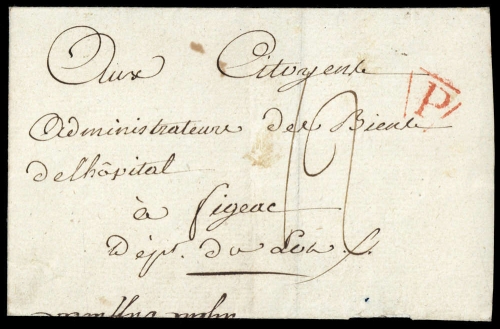 Aux Citoyens
P
Administrateurs des Biens
de l'hôpital
à figeac
Dépt. du Lot